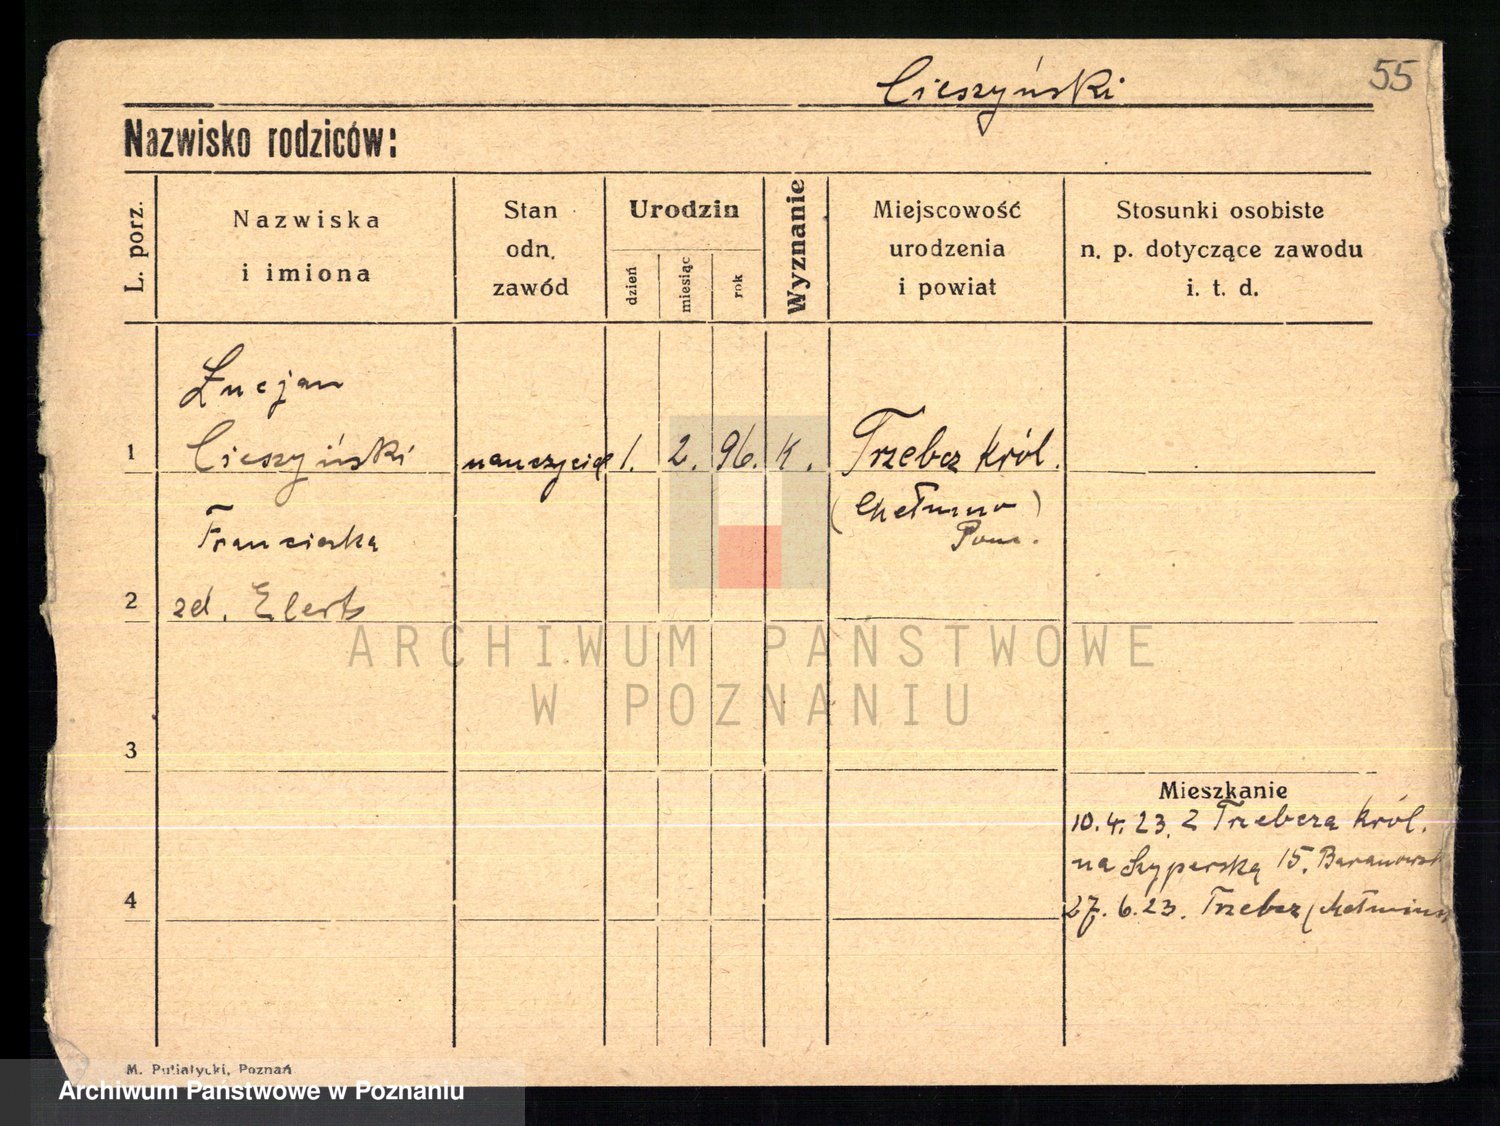 Cieszyński
55
Nazwisko rodziców:
L. porz.
Nazwiska
i imiona
Stan
odn.
zawód
Urodzin
dzień
miesiąc
rok
Wyznanie
Miejscowość
urodzenia
i powiat
Stosunki osobiste
n. p. dotyczące zawodu
i. t. d.
Łucjan
1 Cieszyński nauczyciel 1. 2. 96. K. Trzebcz Król.
(Chełmno)
Pom.
Franciszka
2 zd. Elert
ARCHIWUM PAŃSTWOWE
W POZNANIU
3
Mieszkanie
10.4.23. z Trzebcza Król.
na Szyperską 15. Baranowsk
4
27.6.23. Trzebcz (Chełmińs
M. Putiatycki, Poznań
Archiwum Państwowe w Poznaniu